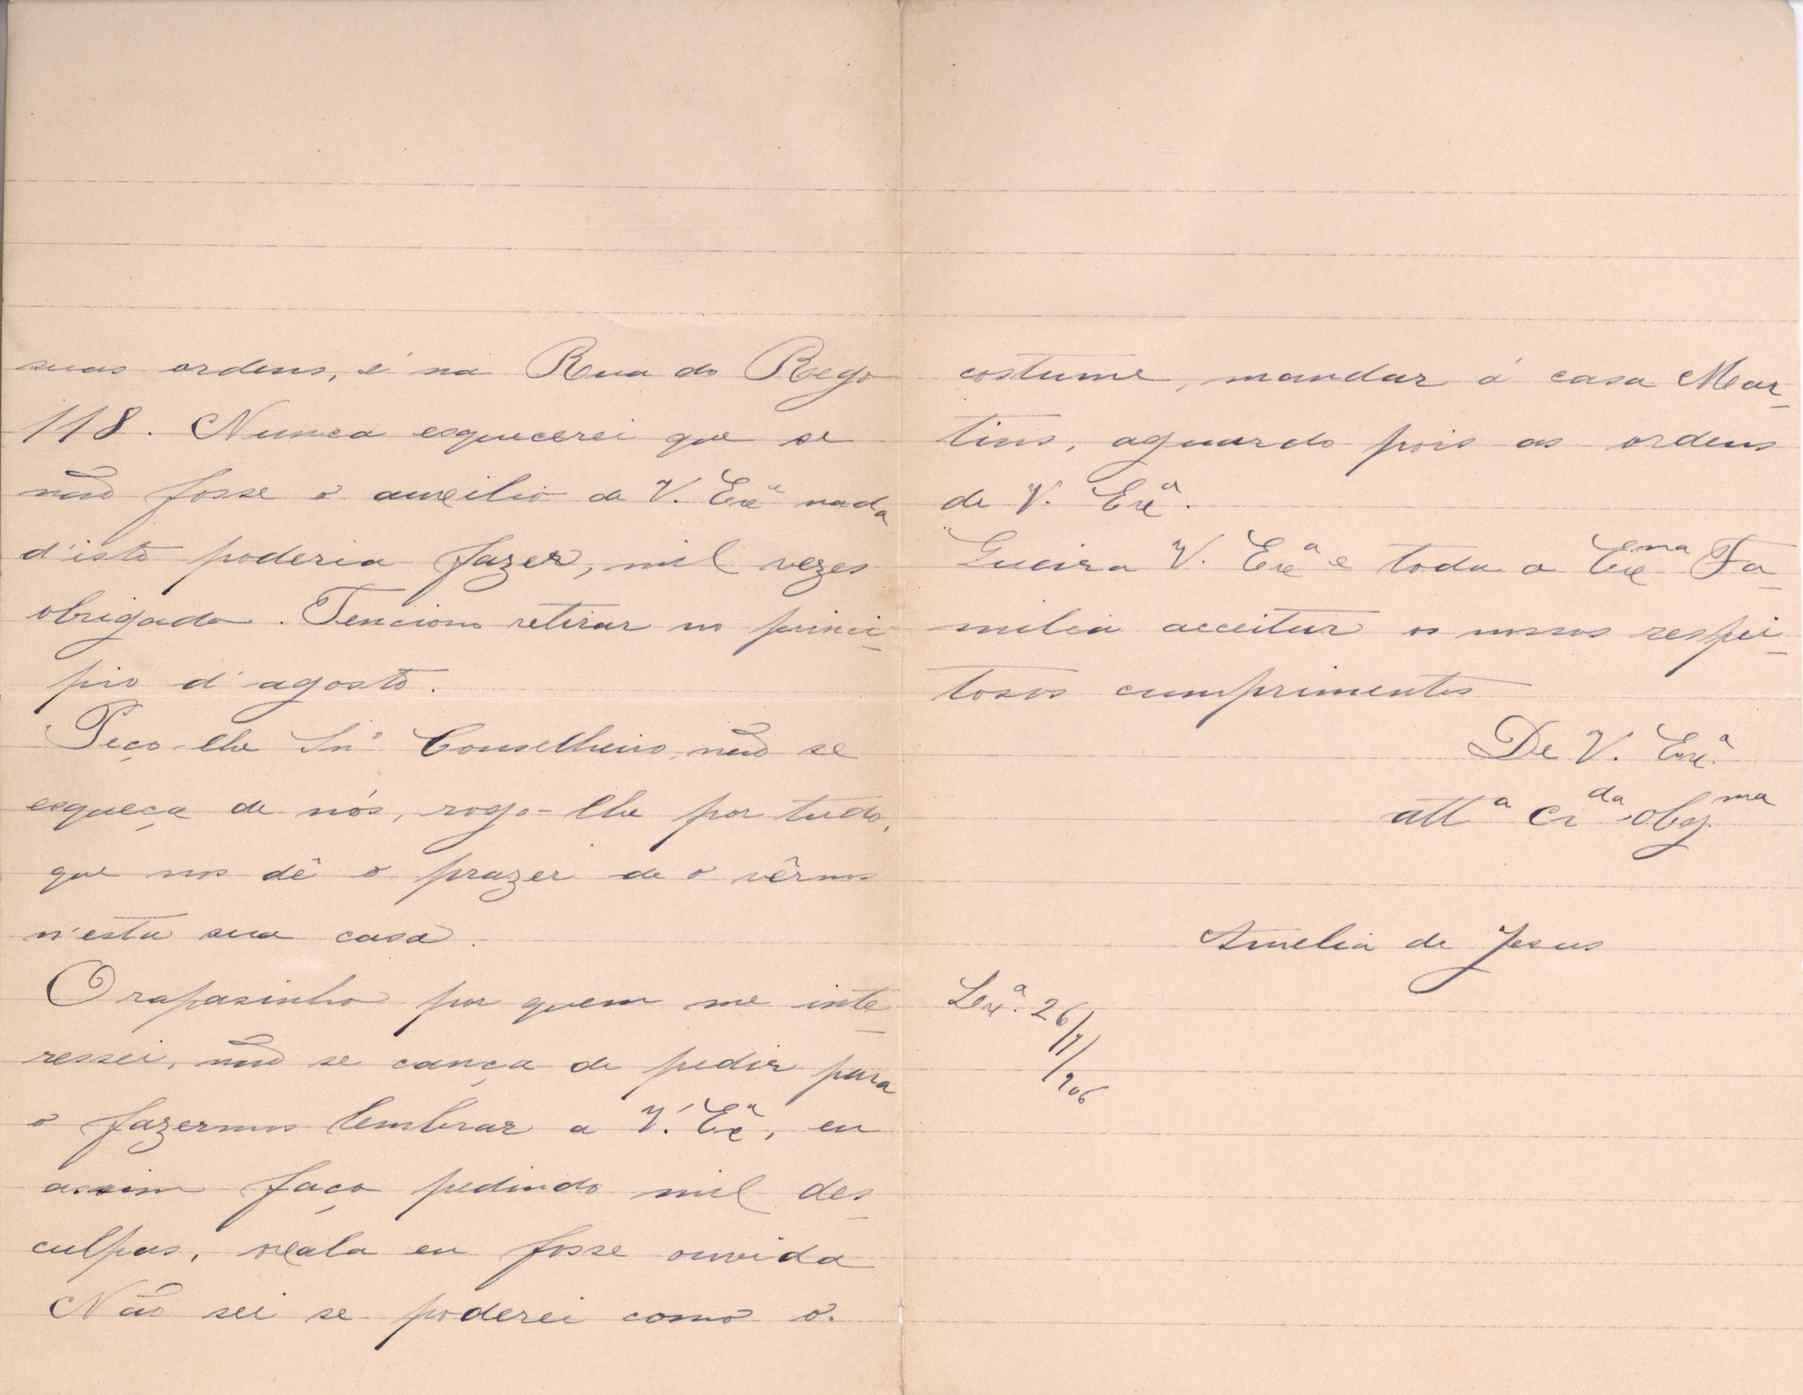 suas ordens, é na Rua do Rego
118. Nunca esquecerei que se
não fosse o auxilio de V. Exª nada
d'isto poderia fazer, mil vezes
obrigada. Tenciono retirar no princi-
pio d'agosto.
Peço-lhe Snr Conselheiro, não se
esqueça de nós, rogo-lhe por tudo,
que nos dê o prazer de o vêrmos
n'esta sua casa.
O rapasinho por quem me inte-
ressei, não se cança de pedir para
o fazermos lembrar a V. Exª, eu
assim faço pedindo mil des-
culpas, oxala eu fosse ouvida
Não sei se poderei como o
costume, mandar á casa Mar-
tins, aguardo pois as ordens
de V. Exª.
Queira V. Exª e toda a Exma Fa-
milia acceitar os nossos respei-
tosos cumprimentos
De V. Exª.
attª crda obgma
Amelia de Jesus
Lxª. 26/7/906